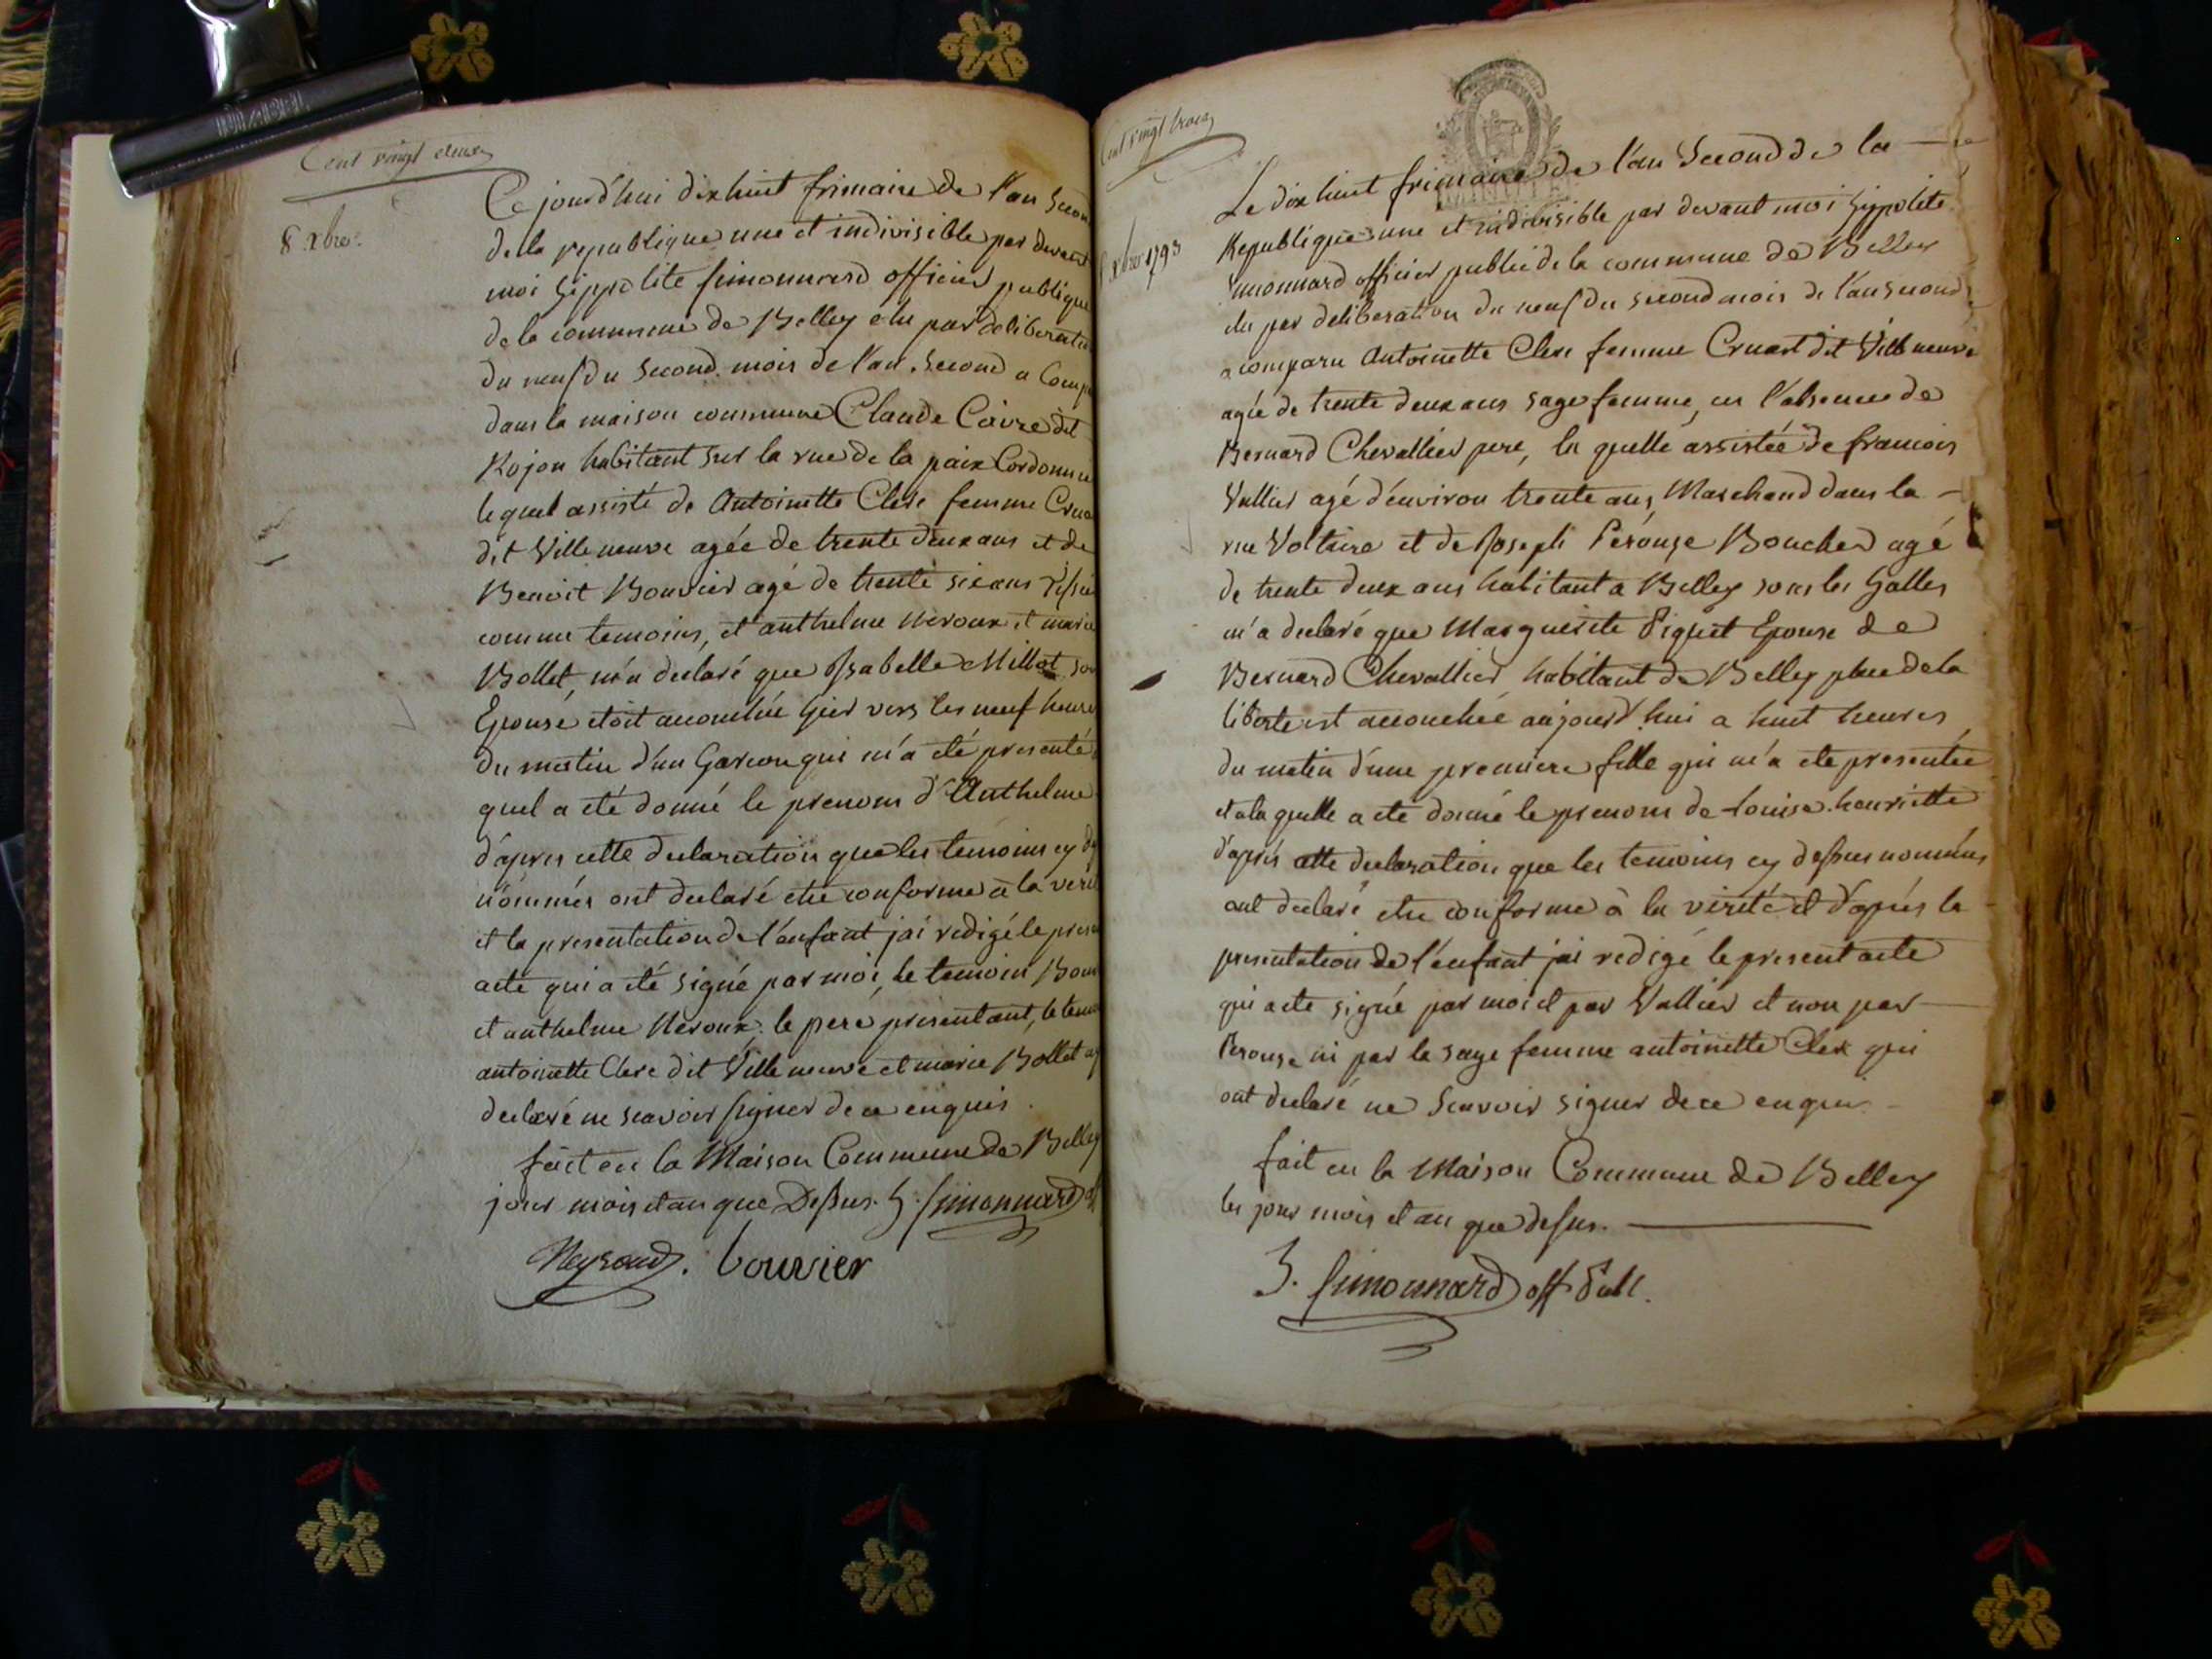 Cent vingt deux
8 Xbre.
Ce jourd'hui dix huit frimaire de l'an Secon
de la republique une et indivisible par devant
moi hippolite Simonnard officier publique
de la commune de Belley elu par deliberation
du neuf du second mois de l'an second a Comp
dans la maison commune Claude Coivre dit
Rojon habitant sur la rue de la paix Cordonnie
lequel assisté de Antoinette Clere femme Crua
dit Villeneuve agée de trente deux ans et de
Benoit Bouvier agé de trente six ans
comme temoins, et anthelme Neroux et marie
Bollet, m'a declaré que Isabelle Millot son
Epouse etoit accouchée hier vers les neuf heures
du matin d'un Garcon qui m'a été presenté
quel a eté donné le prenom d'Anthelme
d'apres cette declaration que les temoins cy d
nommés ont declaré etre conforme à la verit
et la presentation de l'enfant jai redigé le prese
acte qui a été signé par moi, le temoin Bou
et anthelme Neroux. le pere presentant, le tem
antoinette Clere dit Ville neuve et marie Bollet
declaré ne scavoir signer de ce enquis.
fait en la Maison Commune de Belley
jour mois et an que Dessus. h. Simonnard
Neyroud. bouvier
Cent vingt trois
Xbre 1793
Le dix huit frimaire de l'an Second de la
Republique une et indivisible par devant moi hippolite
Simonnard officier public de la commune de Belley
elu par deliberation du neuf du second mois de l'an second
a comparu Antoinette Clere femme Cruart dit Villeneuve
agée de trente deux ans sage femme, en l'absence de
Bernard Chevallier pere, la quelle assistée de francois
Vallier agé d'environ trente ans, Marchand dans la
rue Voltaire et de Joseph Perouse Boucher agé
de trente deux ans habitant a Belley sous les halles
m'a declaré que Marguerite Piquet Epouse de
Bernard Chevallier habitant de Belley place de la
liberte est accouchée aujourd'hui a huit heures
du matin d'une premiere fille qui m'a ete presentée
et a la quelle a eté donné le prenom de Louise henriette
d'aprés cette declaration que les temoins cy dessus nommés
ont declaré etre conforme à la verité et d'aprés la
presentation de l'enfant jai redigé le present acte
qui a ete signé par moi et par Vallier et non par
Perouse ni par la sage femme antoinette Clere qui
ont declaré ne Scavoir signer de ce enquis.
fait en la Maison Commune de Belley
les jour mois et an que dessus.
h. Simonnard off Publ.